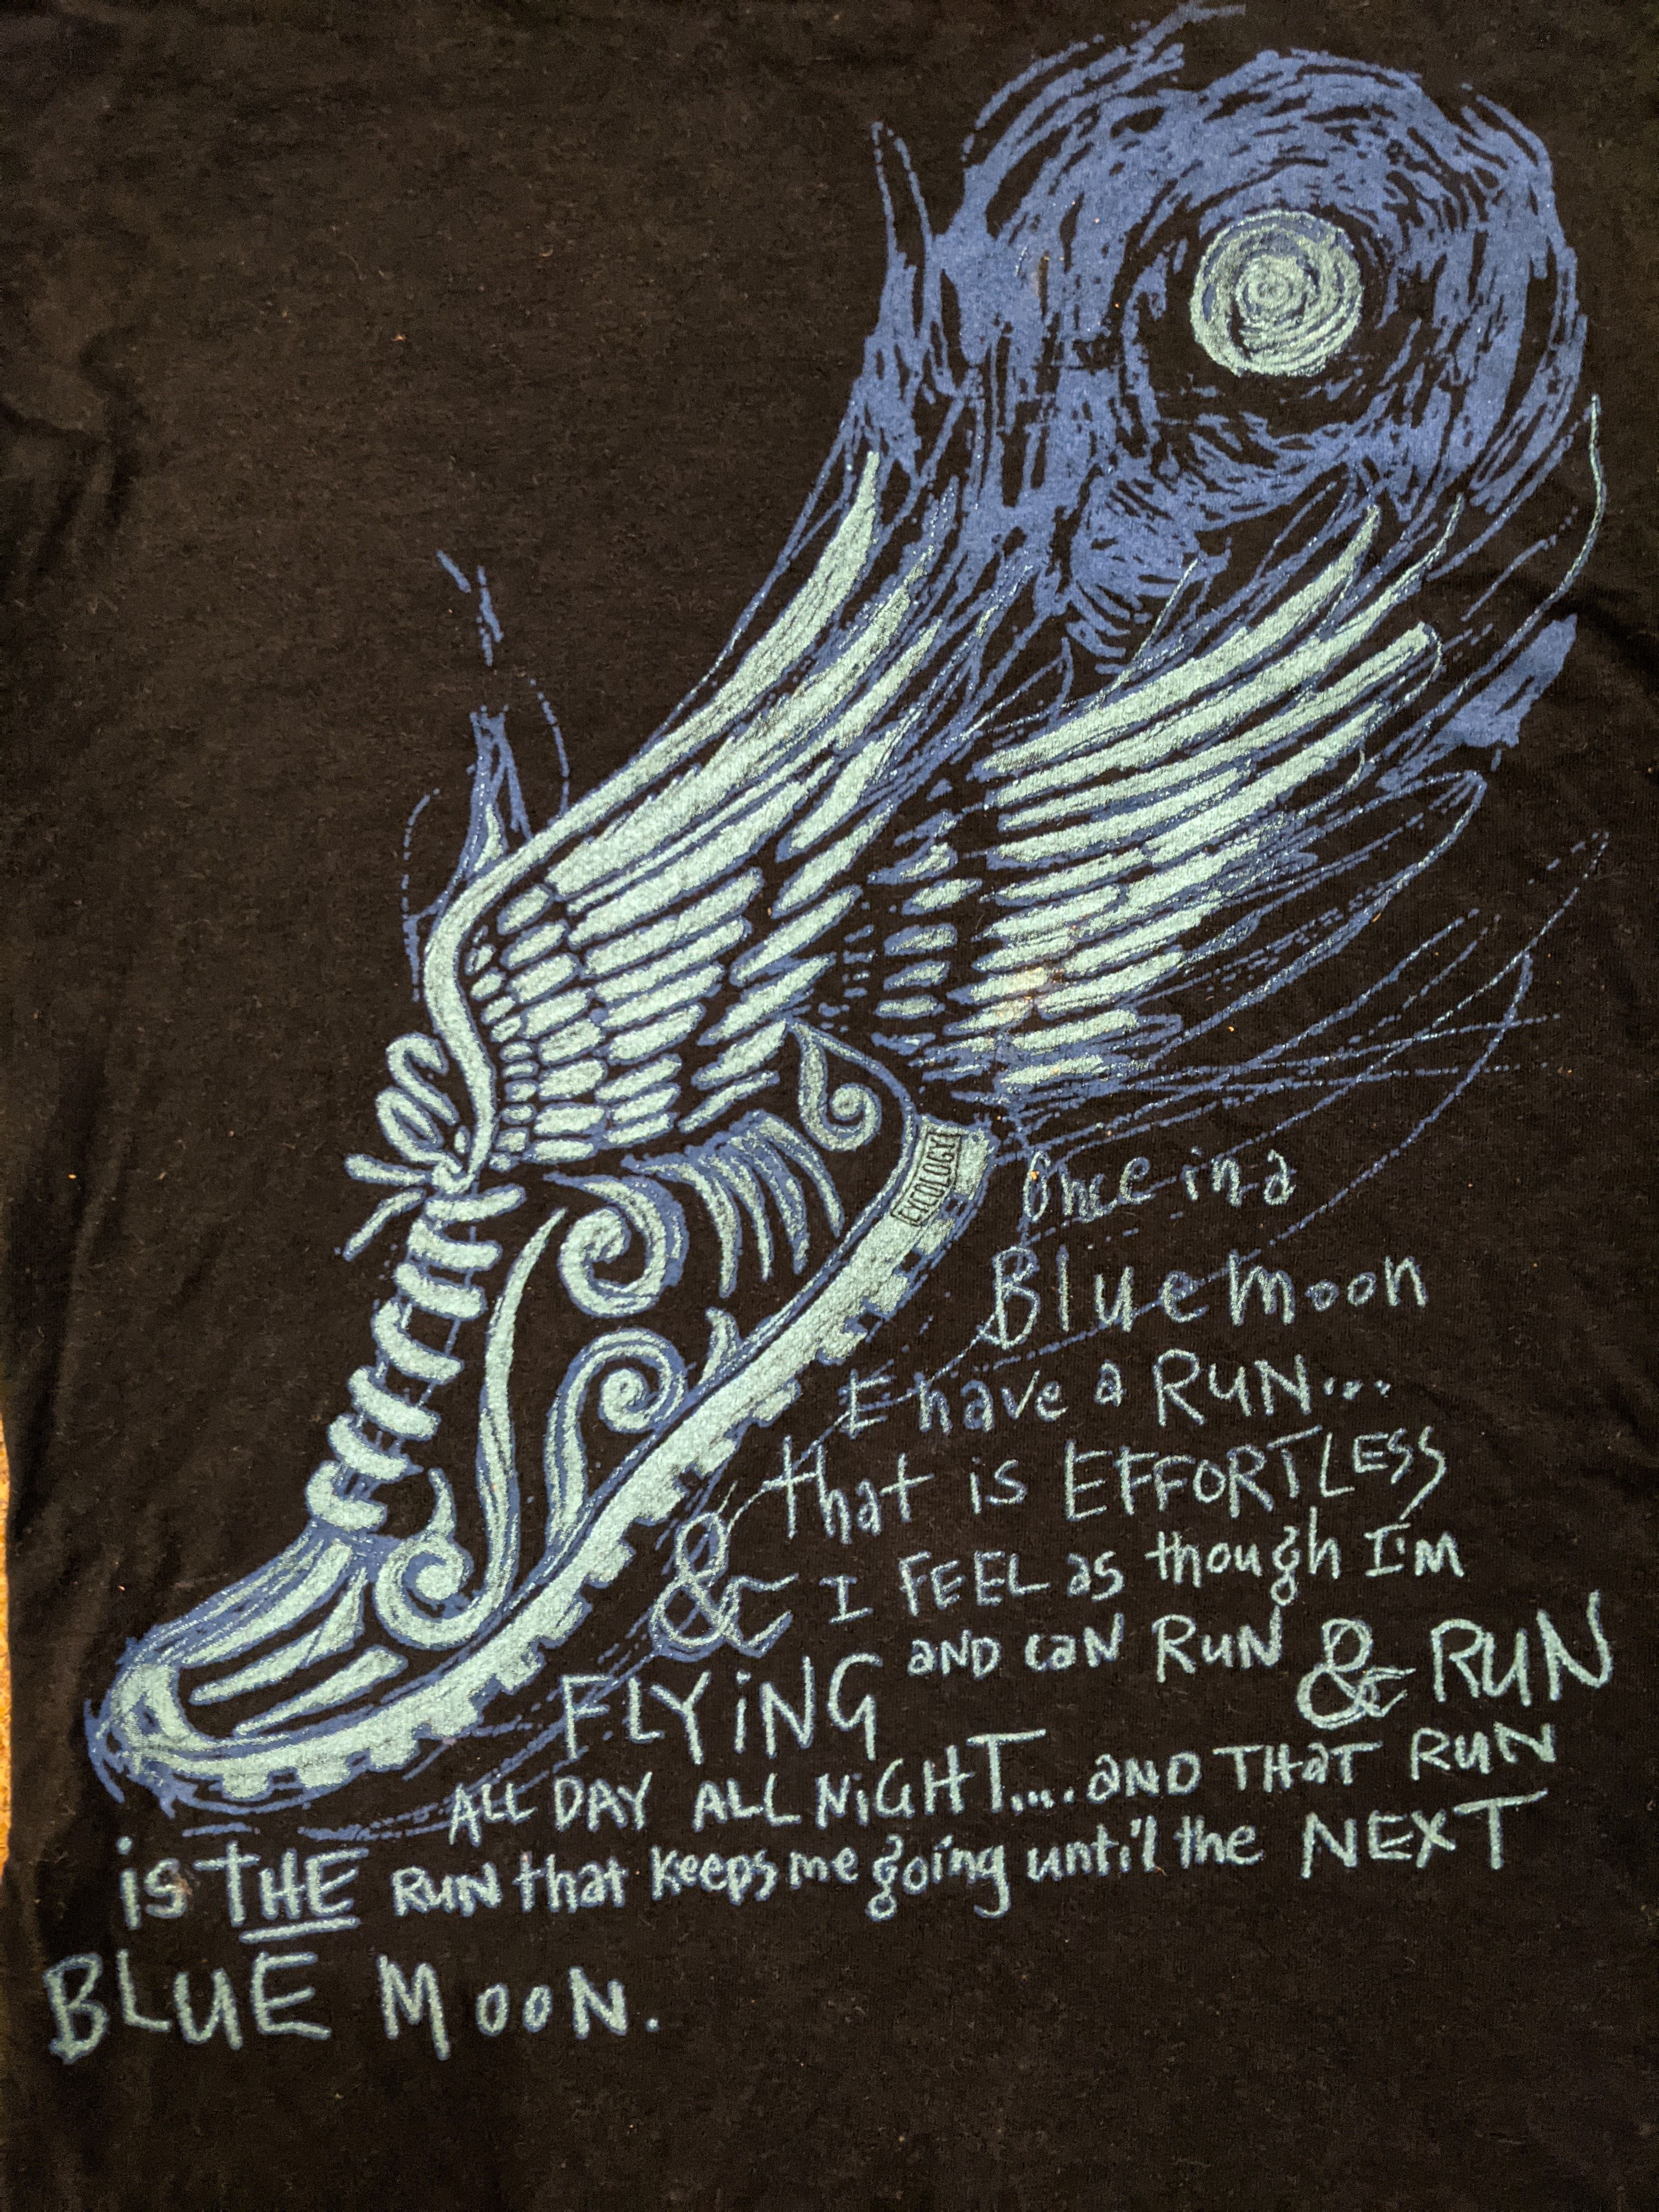 EYEOLOGY
Once in a
Blue moon
I have a RUN...
that is EFFORTLESS
& I FEEL as though I'm
FLYING AND CAN RUN & RUN
ALL DAY ALL NIGHT.... AND THAT RUN
is THE RUN that keeps me going until the NEXT
BLUE MOON.